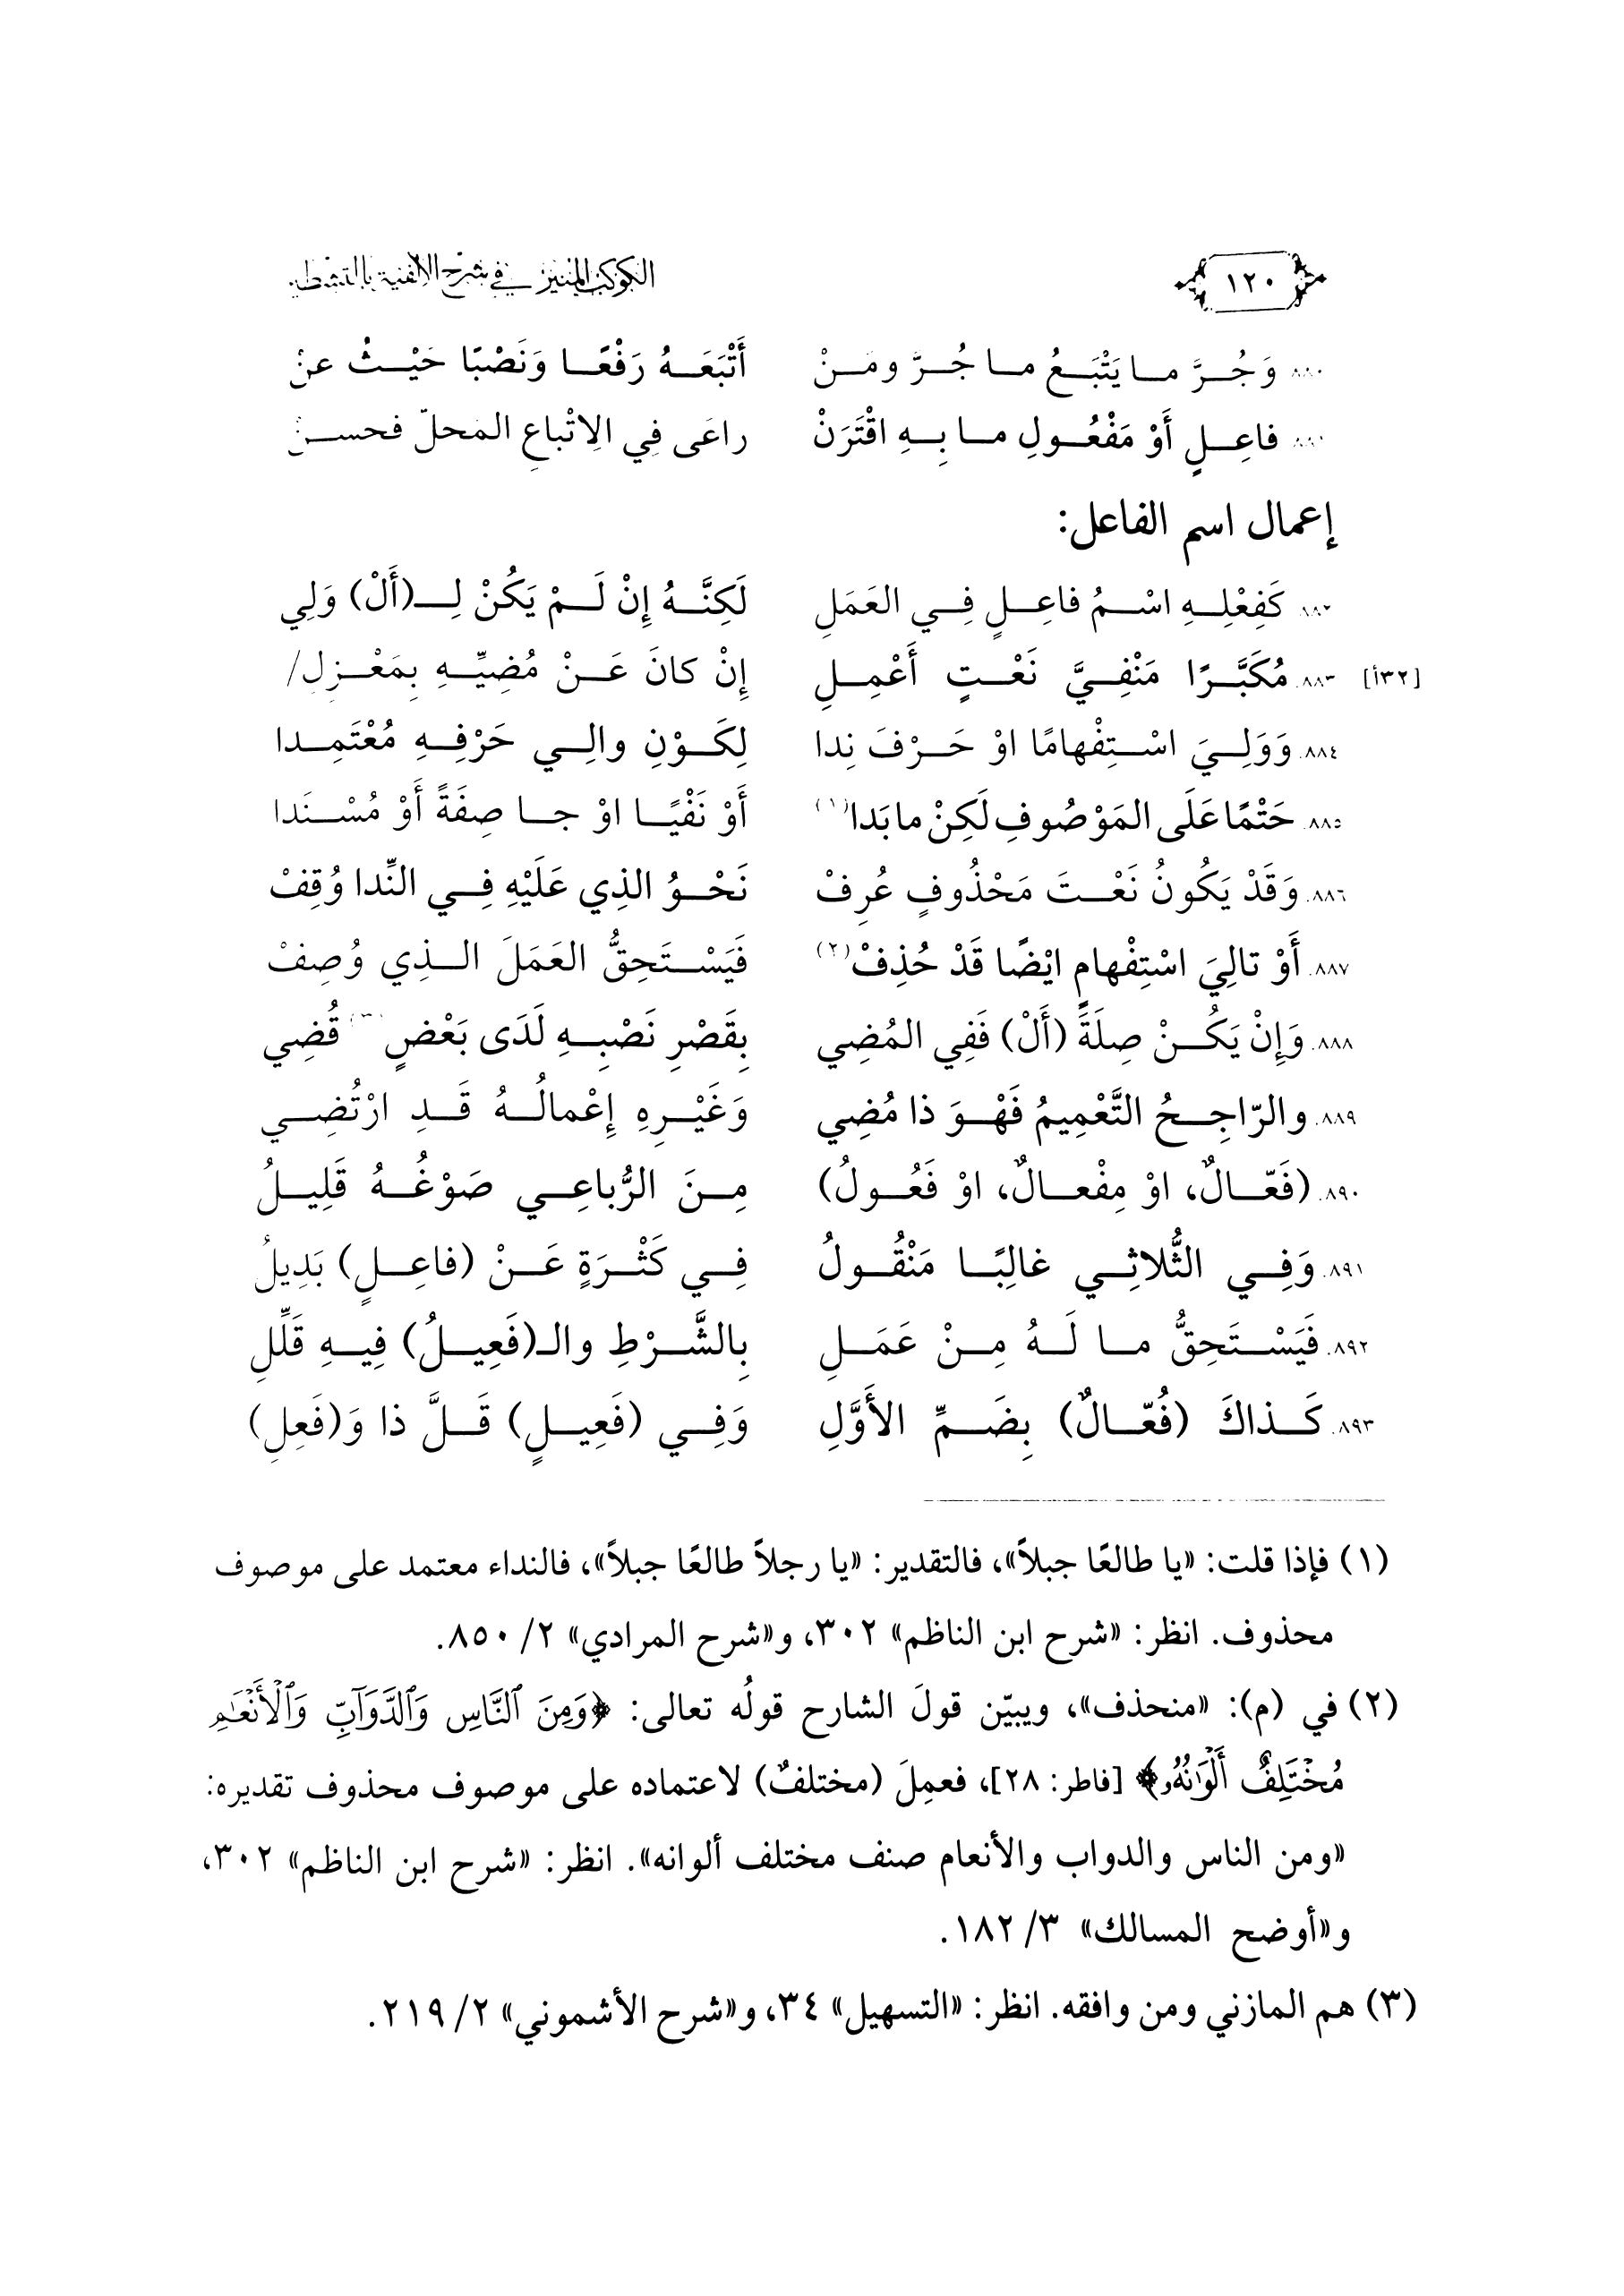 ١٢٠ الكوكب المنير في شرح الألفية بالتشطير
٨٨٠. وَجُرَّ ما يَتْبَعُ ما جُرَّ ومَنْ أَتْبَعَهُ رَفْعًا وَنَصْبًا حَيْثُ عنْ
فاعِلٍ أَوْ مَفْعُولِ ما بِهِ اقْتَرَنْ راعَى فِي الِاتْباعِ المَحلّ فحسنْ
إعمال اسم الفاعل:
٨٨٢. كَفِعْلِهِ اسْمُ فاعِلٍ فِي العَمَلِ لَكِنَّهُ إِنْ لَمْ يَكُنْ لِـ(أَلْ) وَلِي
[٣٢أ] ٨٨٣. مُكَبَّرًا مَنْفِيَّ نَعْتٍ أَعْمِلِ إِنْ كانَ عَنْ مُضِيِّهِ بِمَعْزِلِ/
٨٨٤. وَوَلِيَ اسْتِفْهامًا اوْ حَرْفَ نِدا لِكَوْنِ والِي حَرْفِهِ مُعْتَمِدا
٨٨٥. حَتْمًا عَلَى المَوْصُوفِ لَكِنْ ما بَدا(١) أَوْ نَفْيًا اوْ جا صِفَةً أَوْ مُسْنَدا
٨٨٦. وَقَدْ يَكُونُ نَعْتَ مَحْذُوفٍ عُرِفْ نَحْوُ الذِي عَلَيْهِ فِي النِّدا وُقِفْ
٨٨٧. أَوْ تالِيَ اسْتِفْهامٍ ايْضًا قَدْ حُذِفْ(٢) فَيَسْتَحِقُّ العَمَلَ الذِي وُصِفْ
٨٨٨. وَإِنْ يَكُنْ صِلَةً (أَلْ) فَفِي المُضِي بِقَصْرِ نَصْبِهِ لَدَى بَعْضٍ(٣) قُضِي
٨٨٩. والرّاجِحُ التَّعْمِيمُ فَهْوَ ذا مُضِي وَغَيْرِهِ إِعْمالُهُ قَدِ ارْتُضِي
٨٩٠. (فَعّالٌ، اوْ مِفْعالٌ، اوْ فَعُولُ) مِنَ الرُّباعِي صَوْغُهُ قَلِيلُ
٨٩١. وَفِي الثُّلاثِي غالِبًا مَنْقُولُ فِي كَثْرَةٍ عَنْ (فاعِلٍ) بَدِيلُ
٨٩٢. فَيَسْتَحِقُّ ما لَهُ مِنْ عَمَلِ بِالشَّرْطِ والـ(فَعِيلُ) فِيهِ قَلِّلِ
٨٩٣. كَذاكَ (فُعّالٌ) بِضَمِّ الأَوَّلِ وَفِي (فَعِيلٍ) قَلَّ ذا وَ(فَعِلِ)
(١) فإذا قلت: «يا طالعًا جبلاً»، فالتقدير: «يا رجلاً طالعًا جبلاً»، فالنداء معتمد على موصوف
محذوف. انظر: «شرح ابن الناظم» ٣٠٢، و«شرح المرادي» ٢/ ٨٥٠.
(٢) في (م): «منحذف»، ويبيّن قولَ الشارح قولُه تعالى: ﴿وَمِنَ ٱلنَّاسِ وَٱلدَّوَآبِّ وَٱلْأَنْعَٰمِ
مُخْتَلِفٌ أَلْوَٰنُهُۥ﴾ [فاطر: ٢٨]، فعمِلَ (مختلفٌ) لاعتماده على موصوف محذوف تقديره:
«ومن الناس والدواب والأنعام صنف مختلف ألوانه». انظر: «شرح ابن الناظم» ٣٠٢،
و«أوضح المسالك» ٣/ ١٨٢.
(٣) هم المازني ومن وافقه. انظر: «التسهيل» ٣٤، و«شرح الأشموني» ٢/ ٢١٩.